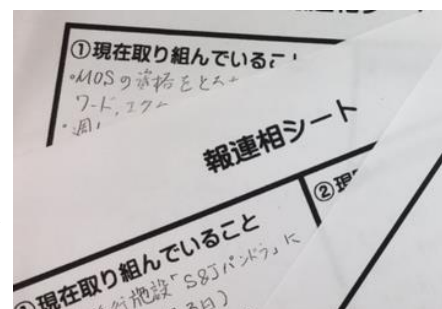 ①現在取り組んでいること
・MOSの資格をと
ワード、エク
・週
報連相シート
②現
①現在取り組んでいること
行施設「S&Jパンドラ」に
日)